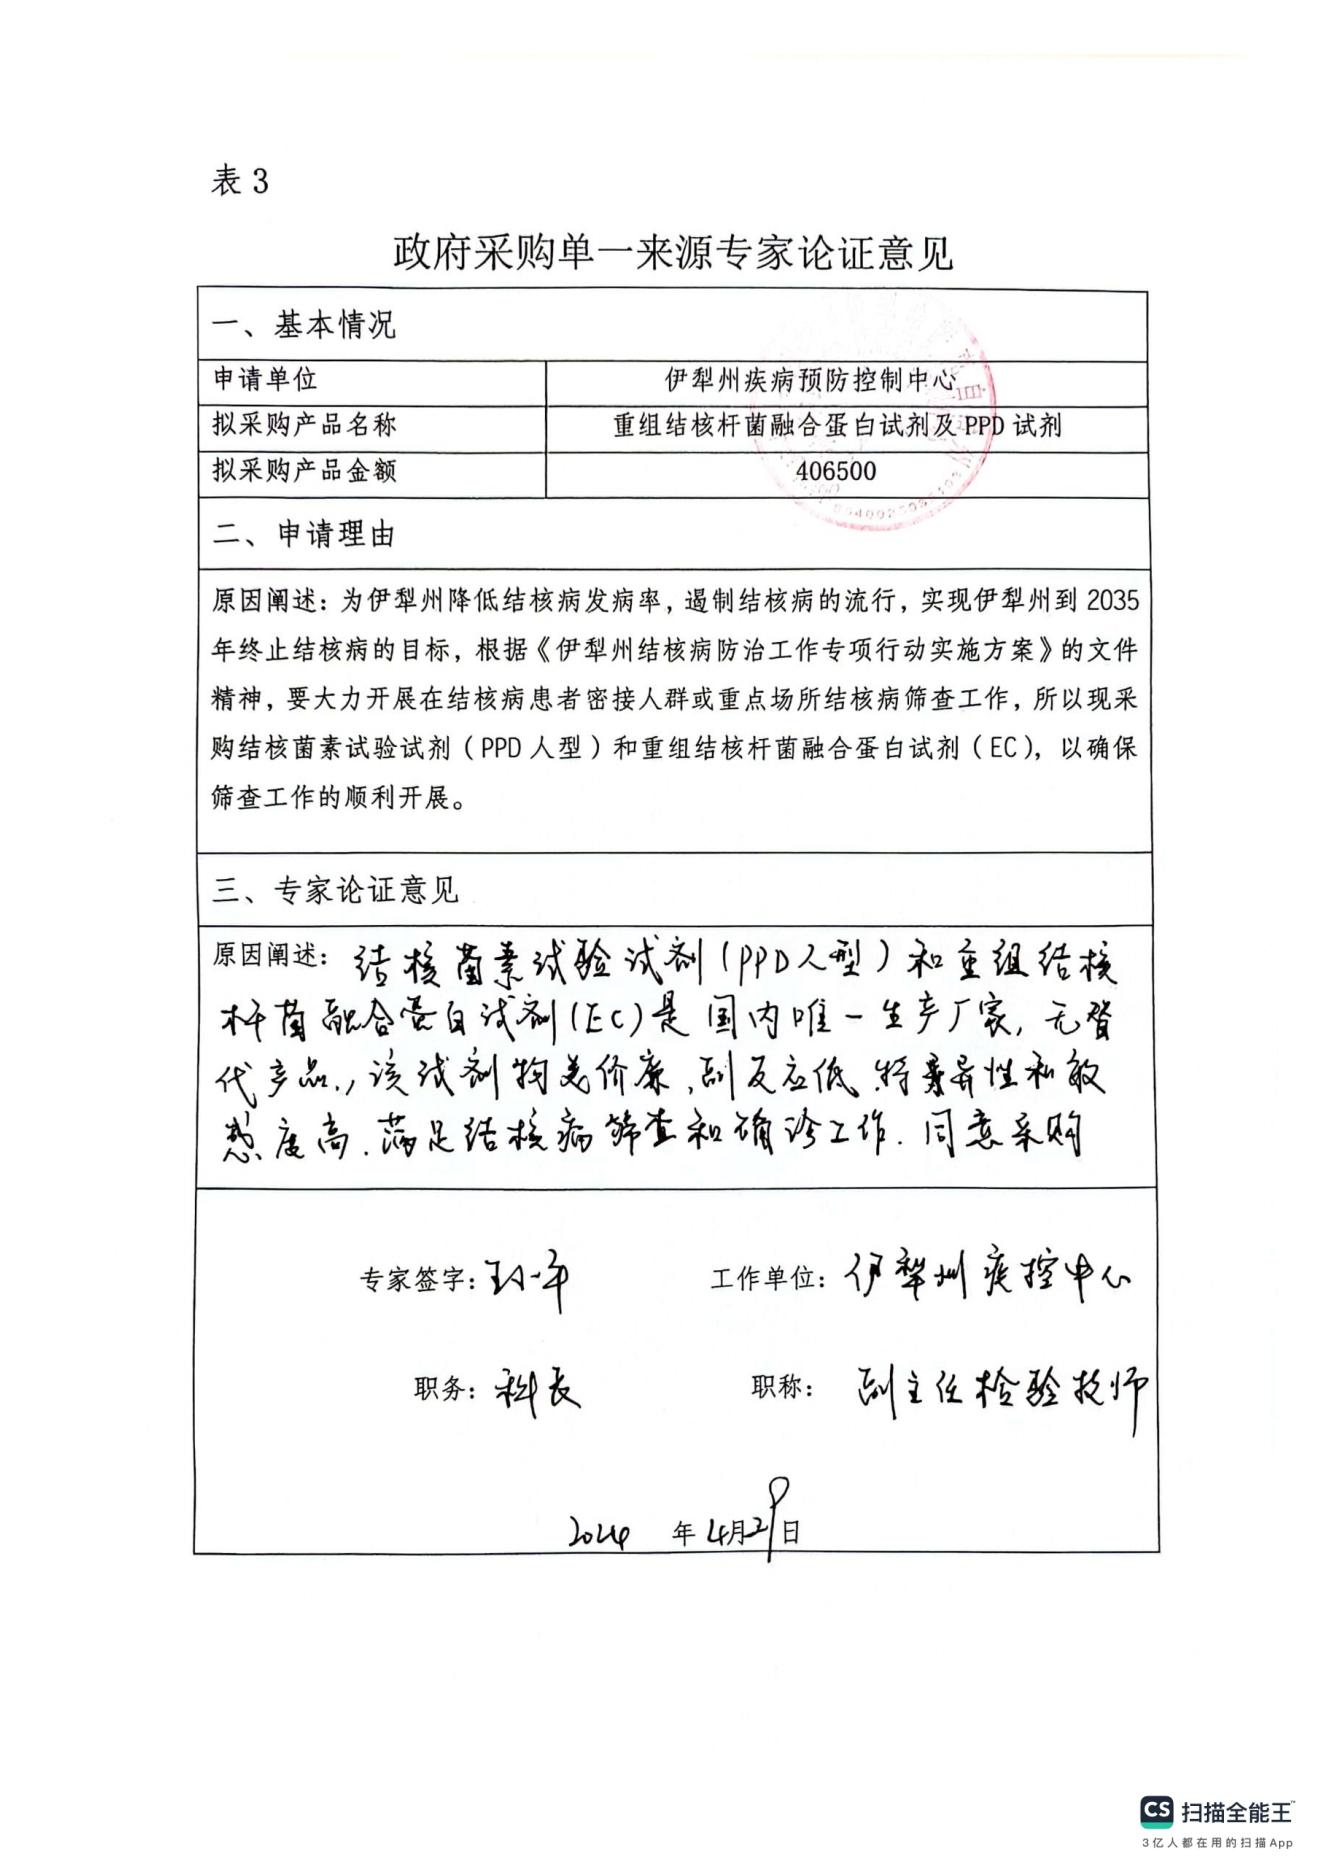 表 3
政府采购单一来源专家论证意见
一、基本情况
申请单位 伊犁州疾病预防控制中心
拟采购产品名称 重组结核杆菌融合蛋白试剂及 PPD 试剂
拟采购产品金额 406500
二、申请理由
原因阐述：为伊犁州降低结核病发病率，遏制结核病的流行，实现伊犁州到 2035
年终止结核病的目标，根据《伊犁州结核病防治工作专项行动实施方案》的文件
精神，要大力开展在结核病患者密接人群或重点场所结核病筛查工作，所以现采
购结核菌素试验试剂（PPD 人型）和重组结核杆菌融合蛋白试剂（EC），以确保
筛查工作的顺利开展。
三、专家论证意见
原因阐述：结核菌素试验试剂（PPD人型）和重组结核
杆菌融合蛋白试剂（EC）是国内唯一生产厂家，无替
代产品.，该试剂物美价廉，副反应低.特异性和敏
感度高.满足结核病筛查和确诊工作.同意采购
专家签字： 工作单位：伊犁州疾控中心
职务：科长 职称：副主任检验技师
2024 年 4月29日
CS 扫描全能王
3亿人都在用的扫描App